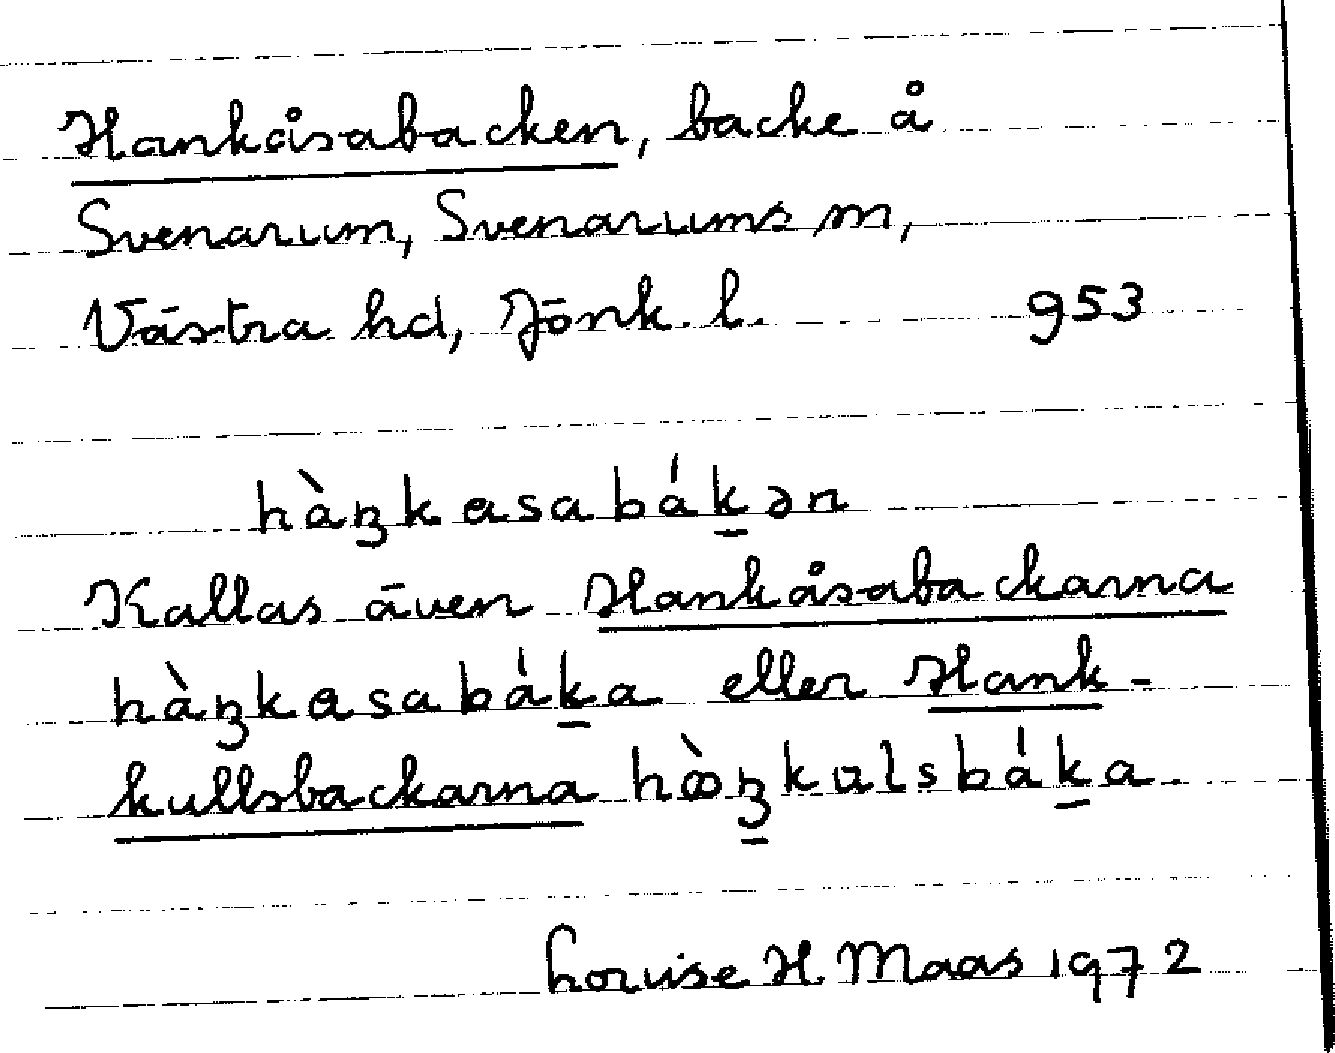 Hankåsabacken, backe å
Svenarum, Svenarums sn,
Västra hd, Jönk. l. 953
hàŋkɵsabák̲ən
Kallas även Hankåsabackarna
hàŋkɵsabák̲a eller Hank-
kullsbackarna hàŋ̲kɵlsbák̲a
Louise H. Maas 1972